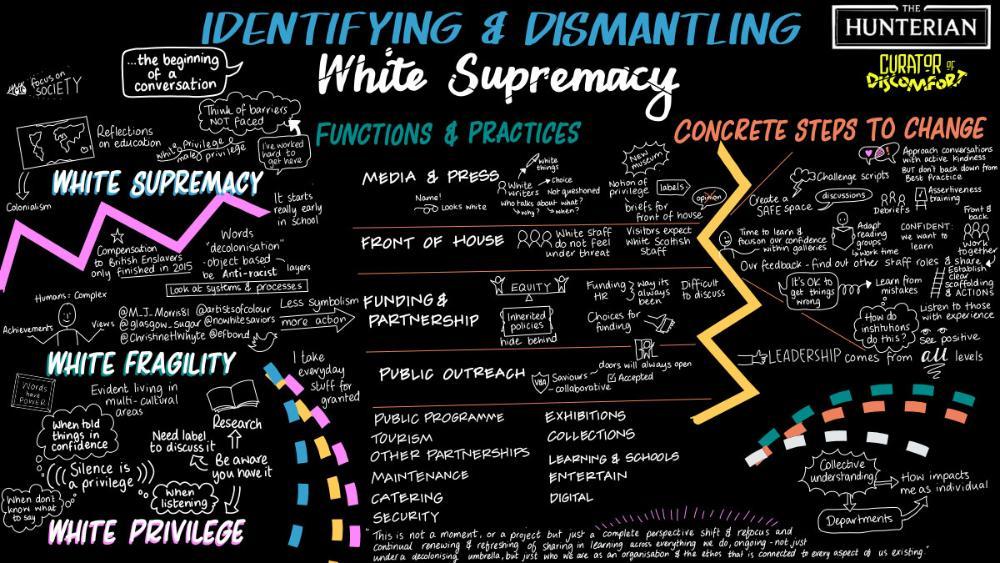 IDENTIFYING & DISMANTLING
White Supremacy
THE
HUNTERIAN
CURATOR OF
DISCOMFORT
focus on
SOCIETY
...the beginning
of a
conversation
Think of barriers
NOT faced
Reflections
on education
white privilege
male privilege
I've worked
hard to
get here
WHITE SUPREMACY
Colonialism
It starts
really early
in school
Compensation
to British Enslavers
only finished in 2015
Words
"decolonisation"
-object based
be Anti-racist
layers
Look at systems & processes
Humans = Complex
Achievements
Views
@M.J_Morris81 @artisksofcolour
@glasgow_sugar @nowhitesaviors
@ChristinetHwhyte @efbond
Less symbolism
more action
WHITE FRAGILITY
Words
have
POWER
Evident living in
multi-cultural
areas
I take
everyday
stuff for
granted
When told
things in
confidence
Research
Need label
to discuss it
Silence is
a privilege
Be aware
you have it
When don't
know what
to say
when
listening
WHITE PRIVILEGE
FUNCTIONS & PRACTICES
MEDIA & PRESS
Name!
Looks white
white
things
White
writers
Choice
Not questioned
who talks about what?
why?
when?
New
museum
Notion of
privilege
labels
opinion
briefs for
front of house
FRONT OF HOUSE
White staff
do not feel
under threat
Visitors expect
white Scottish
staff
FUNDING &
PARTNERSHIP
EQUITY
Inherited
policies
hide behind
Funding
HR
way its
always
been
Difficult
to discuss
Choices for
funding
PUBLIC OUTREACH
Saviours
-collaborative
doors will always open
Accepted
PUBLIC PROGRAMME
TOURISM
OTHER PARTNERSHIPS
MAINTENANCE
CATERING
SECURITY
EXHIBITIONS
COLLECTIONS
LEARNING & SCHOOLS
ENTERTAIN
DIGITAL
"This is not a moment, or a project but just a complete perspective shift & refocus and
continual renewing & refreshing of sharing in learning across everything we do, ongoing - not just
under a decolonising umbrella, but just who we are as an organisation & the ethos that is connected to every aspect of us existing."
CONCRETE STEPS TO CHANGE
Approach conversations
with active kindness
But don't back down from
Best Practice
Challenge scripts
Create a
SAFE space
discussions
Debriefs
Assertiveness
training
Time to learn &
focus on our confidence
within galleries
Adapt
reading
groups
work time
CONFIDENT:
we want to
learn
Front &
back
work
together
Our feedback - find out other staff roles & share
It's OK to
get things
wrong
Learn from
mistakes
Establish
clear
scaffolding
& ACTIONS
How do
institutions
do this?
Listen to those
with experience
See positive
LEADERSHIP comes from all levels
Collective
understanding
How impacts
me as individual
Departments